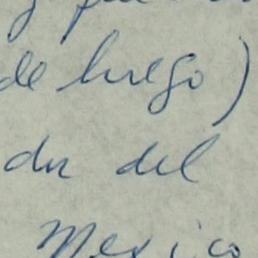 de luego)
du del
Mexico